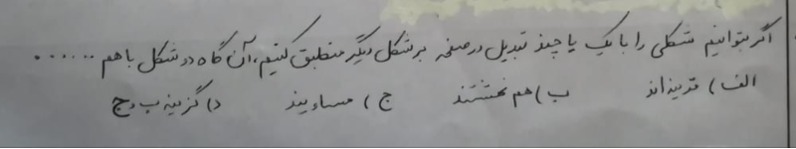 اگر بتوانیم شکلی را با یک یا چند تبدیل در صفحه بر شکل دیگر منطبق کنیم، آن گاه دو شکل با هم ......
الف) قرینه‌اند ب) هم نهشتند ج) مساویند د) گزینه ب و ج